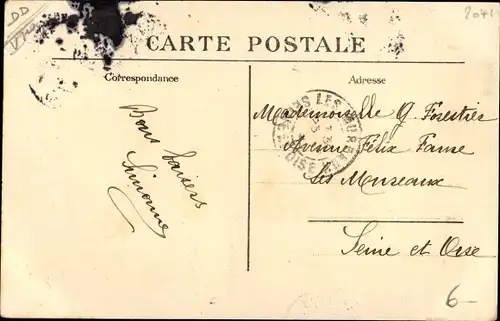 DD
2041
CARTE POSTALE
Correspondance
Adresse
Bons baisers
Simonne
Mademoiselle G. Forestier
Avenue Félix Faure
Les Mureaux
Seine et Oise
LES MUREAUX
6-